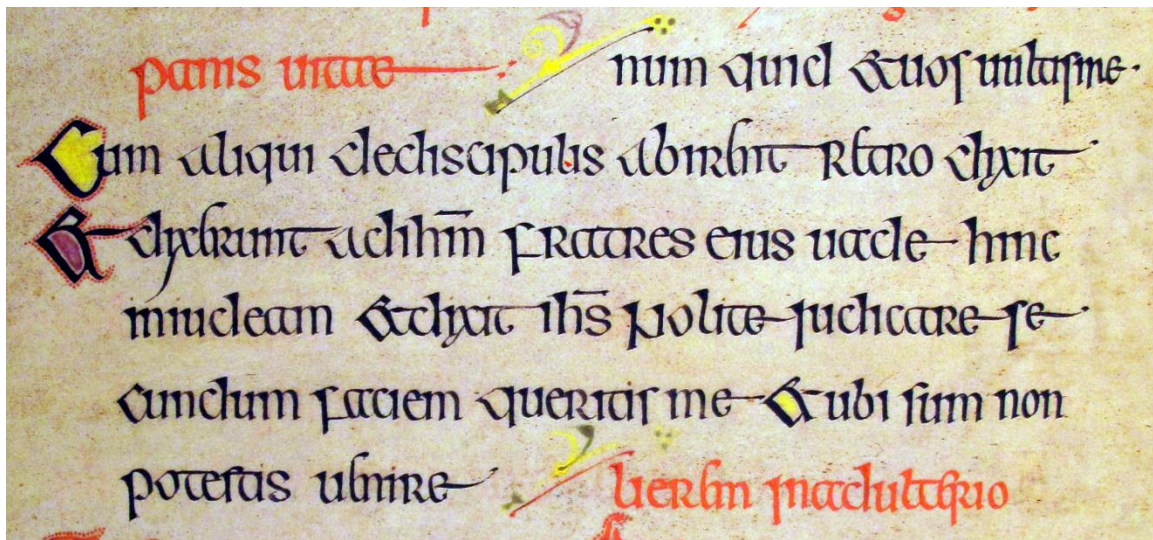 panis uitae num quid &uos uultisme·
Cum aliqui dediscipulis abirent retro dixit
& dixerunt adihm̅ fratres eius uade hinc
iniudeam &dixit ihs̅ Nolite iudicare se
cundum faciem queritis me &ubi sum non
potestis uenire lierem inadulterio